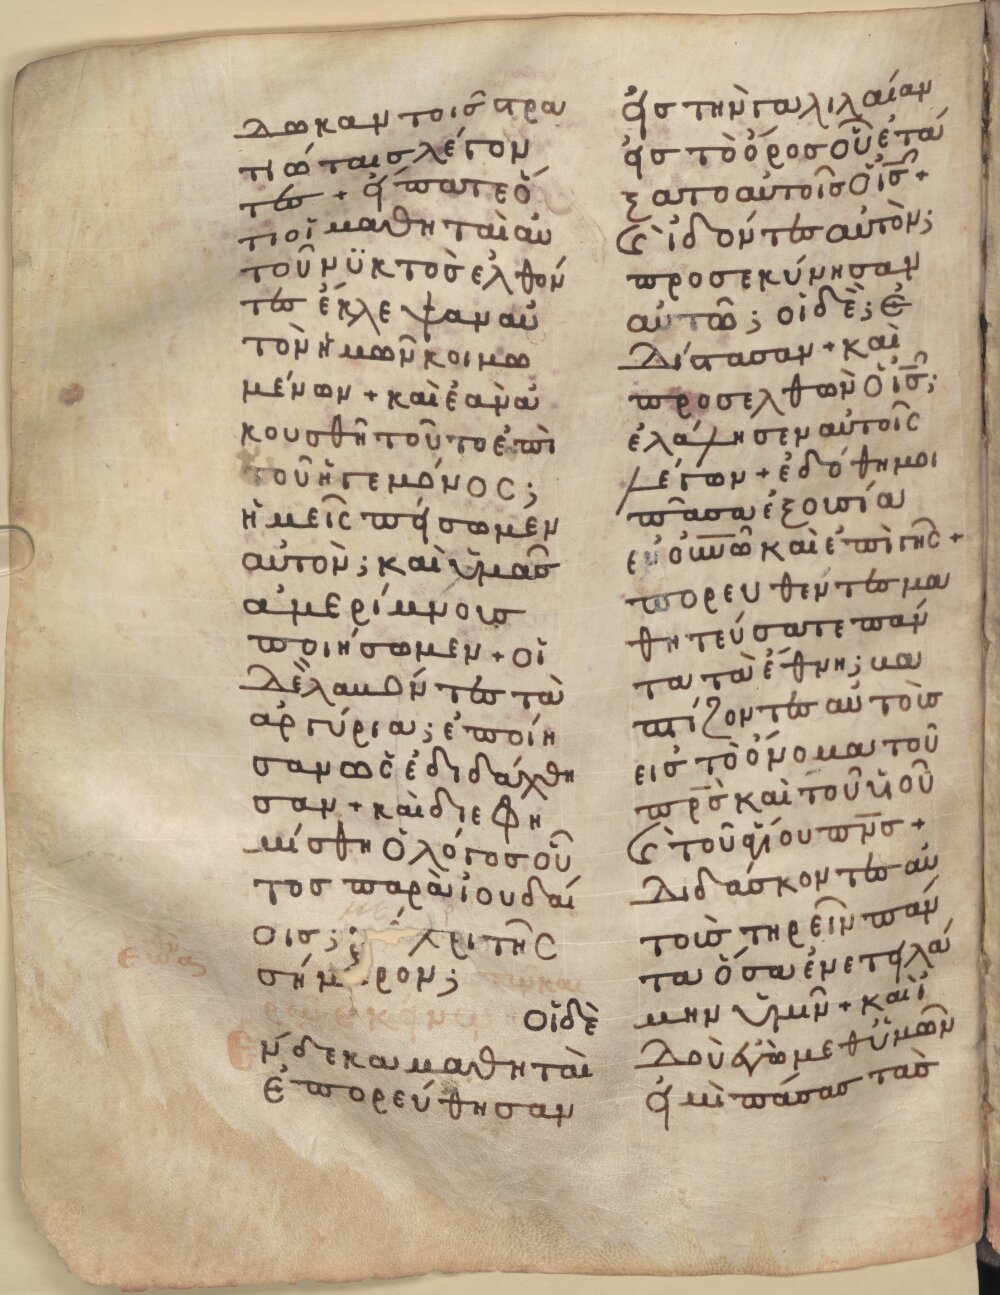 δωκαν τοῖς στρα
τιώταις λέγον
τες + εἴπατε ὅ
τι οἱ μαθηταὶ αὐ
τοῦ νϋκτὸς ἐλθόν
τες ἔκλεψαν αὐ
τὸν ἡμῶν κοιμω
μένων + καὶ ἐὰν ἀ
κουσθῆ τοῦτο ἐπὶ
τοῦ ἡγεμόνος;
ἡμεῖς πείσωμεν
αὐτόν; καὶ ὑμᾶς
ἀμερίμνους
ποιήσωμεν + οἱ
δὲ λαβόντες τὰ
ἀργύρια; ἐποίη
σαν ὡς ἐδιδάχθη
σαν + καὶ διεφη
μίσθη ὁ λόγος οὗ
τος παρὰ ἰουδαί
οις; χρι τῆς
σήμερον;
Οἱ δὲ
ἕνδεκα μαθηταὶ
ἐπορεύθησαν
εἰς τὴν γαλιλαίαν
εἰς τὸ ὄρος οὗ ἐτά
ξατο αὐτοῖς ὁ ις +
καὶ ἰδόντες αὐτὸν;
προσεκύνησαν
αὐτῶ; οἱ δὲ; ἐ
δίστασαν + καὶ
προσελθὼν ὁ ις;
ἐλάλησεν αὐτοῖς
λέγων + ἐδόθη μοι
πᾶσα ἐξουσία
ἐν οὐνῶ καὶ ἐπὶ γῆς +
πορευθέντες μα
θητεύσατε πάν
τα τὰ ἔθνη; βα
πτίζοντες αὐτοὺς
εἰς τὸ ὄνομα τοῦ
πρς καὶ τοῦ υἱοῦ
καὶ τοῦ ἁγίου πνς +
διδάσκοντες αὐ
τοὺς τηρεῖν πάν
τα ὅσα ἐνετειλά
μην ὑμῖν + καὶ ἰ
δοὺ ἐγὼ μεθ ὑμῶν
εἰμὶ πάσας τὰς